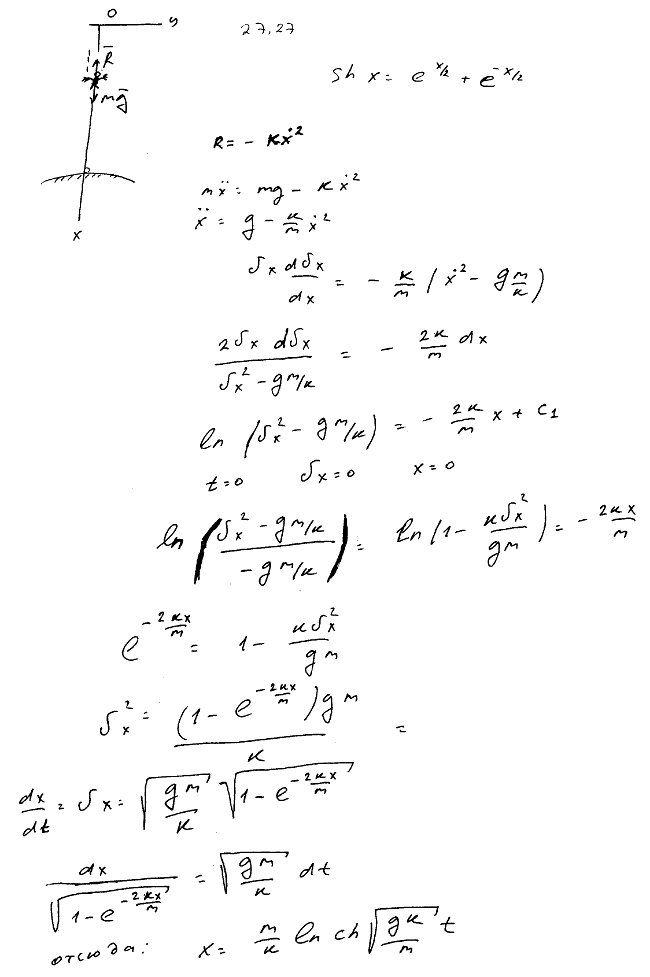 O y
27,27
R̄
sh x = e^{x/2} + e^{-x/2}
mḡ
R = - kẋ²
mẍ = mg - kẋ²
ẍ = g - k/m ẋ²
x
υx dυx/dx = - k/m (ẋ² - g m/k)
2υx dυx / (υx² - g m/k) = - 2k/m dx
ln (υx² - g m/k) = - 2k/m x + C1
t=0 υx=0 x=0
ln ((υx² - g m/k) / (- g m/k)) = ln (1 - kυx²/gm) = - 2kx/m
e^{-2kx/m} = 1 - kυx²/gm
υx² = (1 - e^{-2kx/m}) gm / k =
dx/dt = υx = √(gm/k) √(1 - e^{-2kx/m})
dx / √(1 - e^{-2kx/m}) = √(gm/k) dt
отсюда: x = m/k ln ch √(gk/m) t